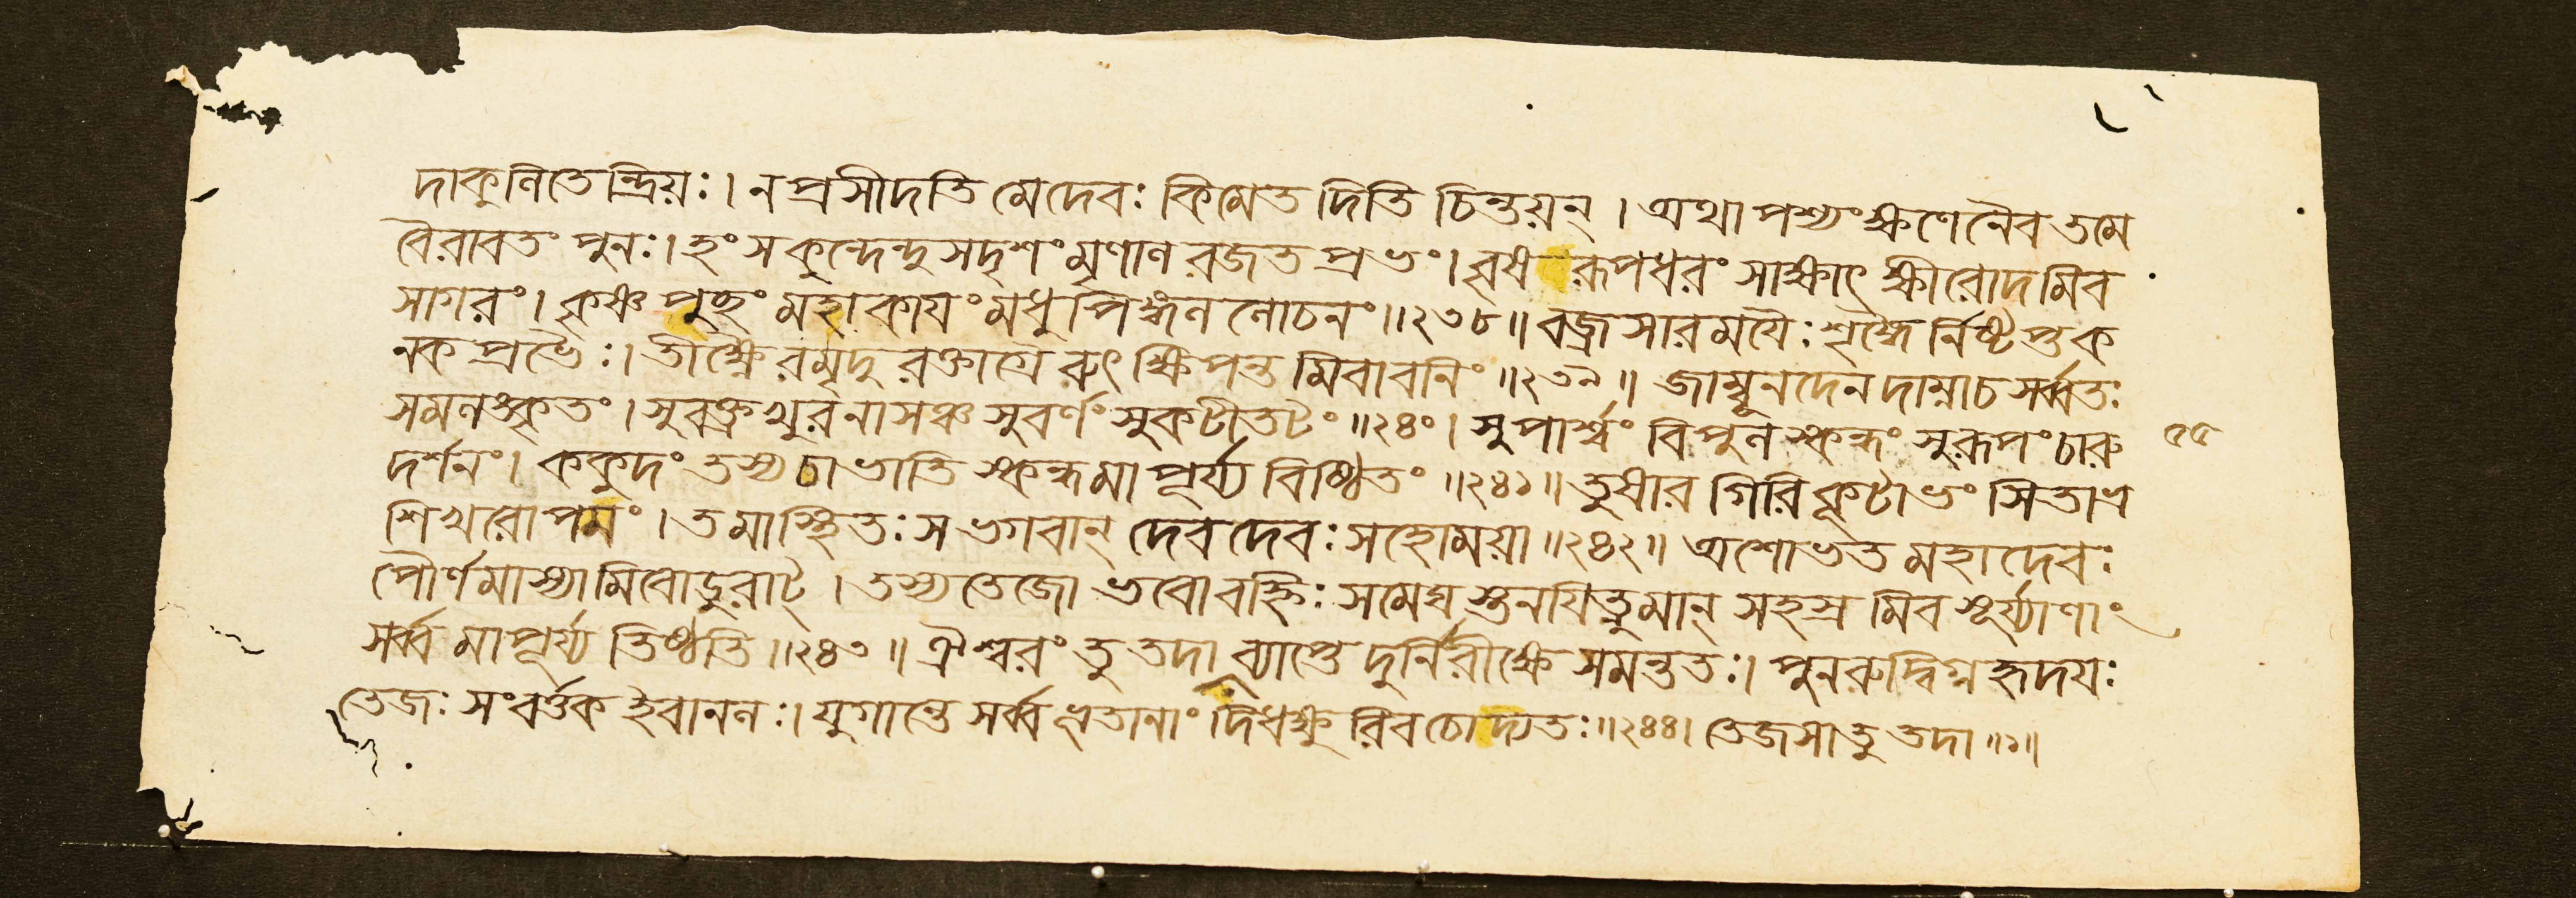 দাকুলিতেন্দ্রিয়ঃ। ন প্রসীদতি মে দেবঃ কিমেত দিতি চিন্তয়ন্। অথাপশ্যংক্ষণেনৈব তমে
বৈরাবতং পুনঃ। হংসকুন্দেন্দুসদৃশং মৃণালরজতপ্রভং। বৃষরূপধরং সাক্ষাৎ ক্ষীরোদমিব
সাগরং। কৃষ্ণপুচ্ছং মহাকায়ং মধুপিঙ্গললোচনং॥২৩৮॥ বজ্রসারময়ৈঃ শৃঙ্গৈর্নিষ্টপ্তক
নকপ্রভৈঃ। তীক্ষ্ণৈরমৃদুরক্তাগ্রৈরুৎক্ষিপন্তমিবাবনিং॥২৩৯॥ জাম্বূনদেন দাম্নাচ সর্ব্বতঃ
সমলঙ্কৃতং। সুবক্ত্রখুরনাসঞ্চ সুবর্ণং সুকটীতটং॥২৪০। সুপার্শ্বং বিপুলস্কন্ধং সুরূপং চারু
৫৫
দর্শনং। ককুদং তস্য চাভাতি স্কন্ধমাপূর্য্য বিষ্ঠিতং॥২৪১॥ তুষারগিরিকূটাভং সিতাভ্র
শিখরোপমং। তমাস্থিতঃ স ভগবান্ দেবদেবঃ সহোময়া॥২৪২॥ অশোভত মহাদেবঃ
পৌর্ণমাস্যামিবোড়ুরাট্। তস্য তেজোভবোবহ্নিঃ সমেঘস্তনয়িত্নুমান্ সহস্রমিব সূর্য্যাণাং
সর্ব্বমাপূর্য্য তিষ্ঠতি॥২৪৩॥ ঐশ্বরং তু তদা ব্যাপ্তে দুর্নিরীক্ষে সমন্ততঃ। পুনরুদ্বিগ্নহৃদয়ঃ
তেজঃ সংবর্ত্তক ইবানলঃ। যুগান্তে সর্ব্বভূতানাং দিধক্ষুরিব চোদ্যতঃ॥২৪৪। তেজসা তু তদা॥১॥